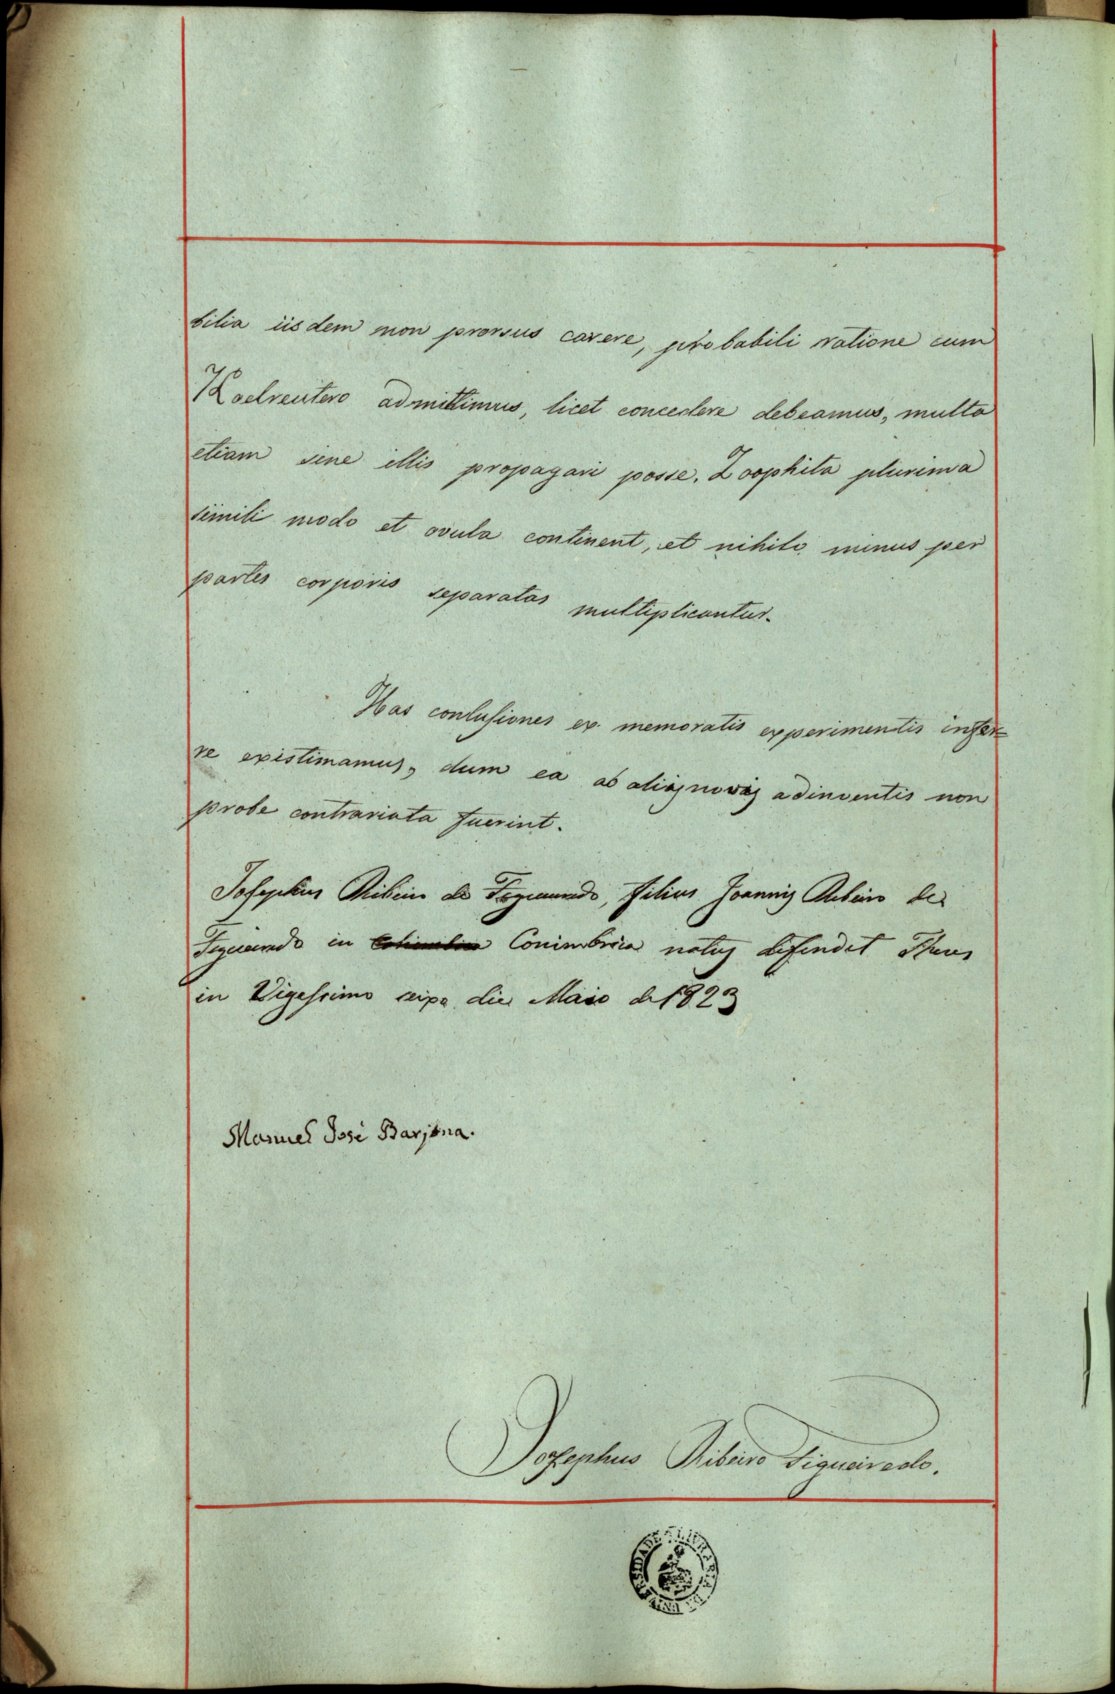 bilia iisdem non prorsus carere, probabili ratione cum
Koelreutero admittimus, licet concedere debeamus, multa
etiam sine illis propagari posse. Zoophita plurima
simili modo et ovula continent, et nihilo minus per
partes corporis separatas multiplicantur.
Has conlusiones ex memoratis experimentis infer=
re existimamus, dum ea ab aliis novis adinventis non
probe contrariata fuerint.
Josephus Ribeiro de Figueiredo, filius Joannis Ribeiro de
Figueiredo in Conimbrica natus defendet Theses
in Vigessimo die Maio de 1823
Manuel José Barjona.
Josephus Ribeiro Figueiredo.
LIVRARIA DA UNIVERSIDADE